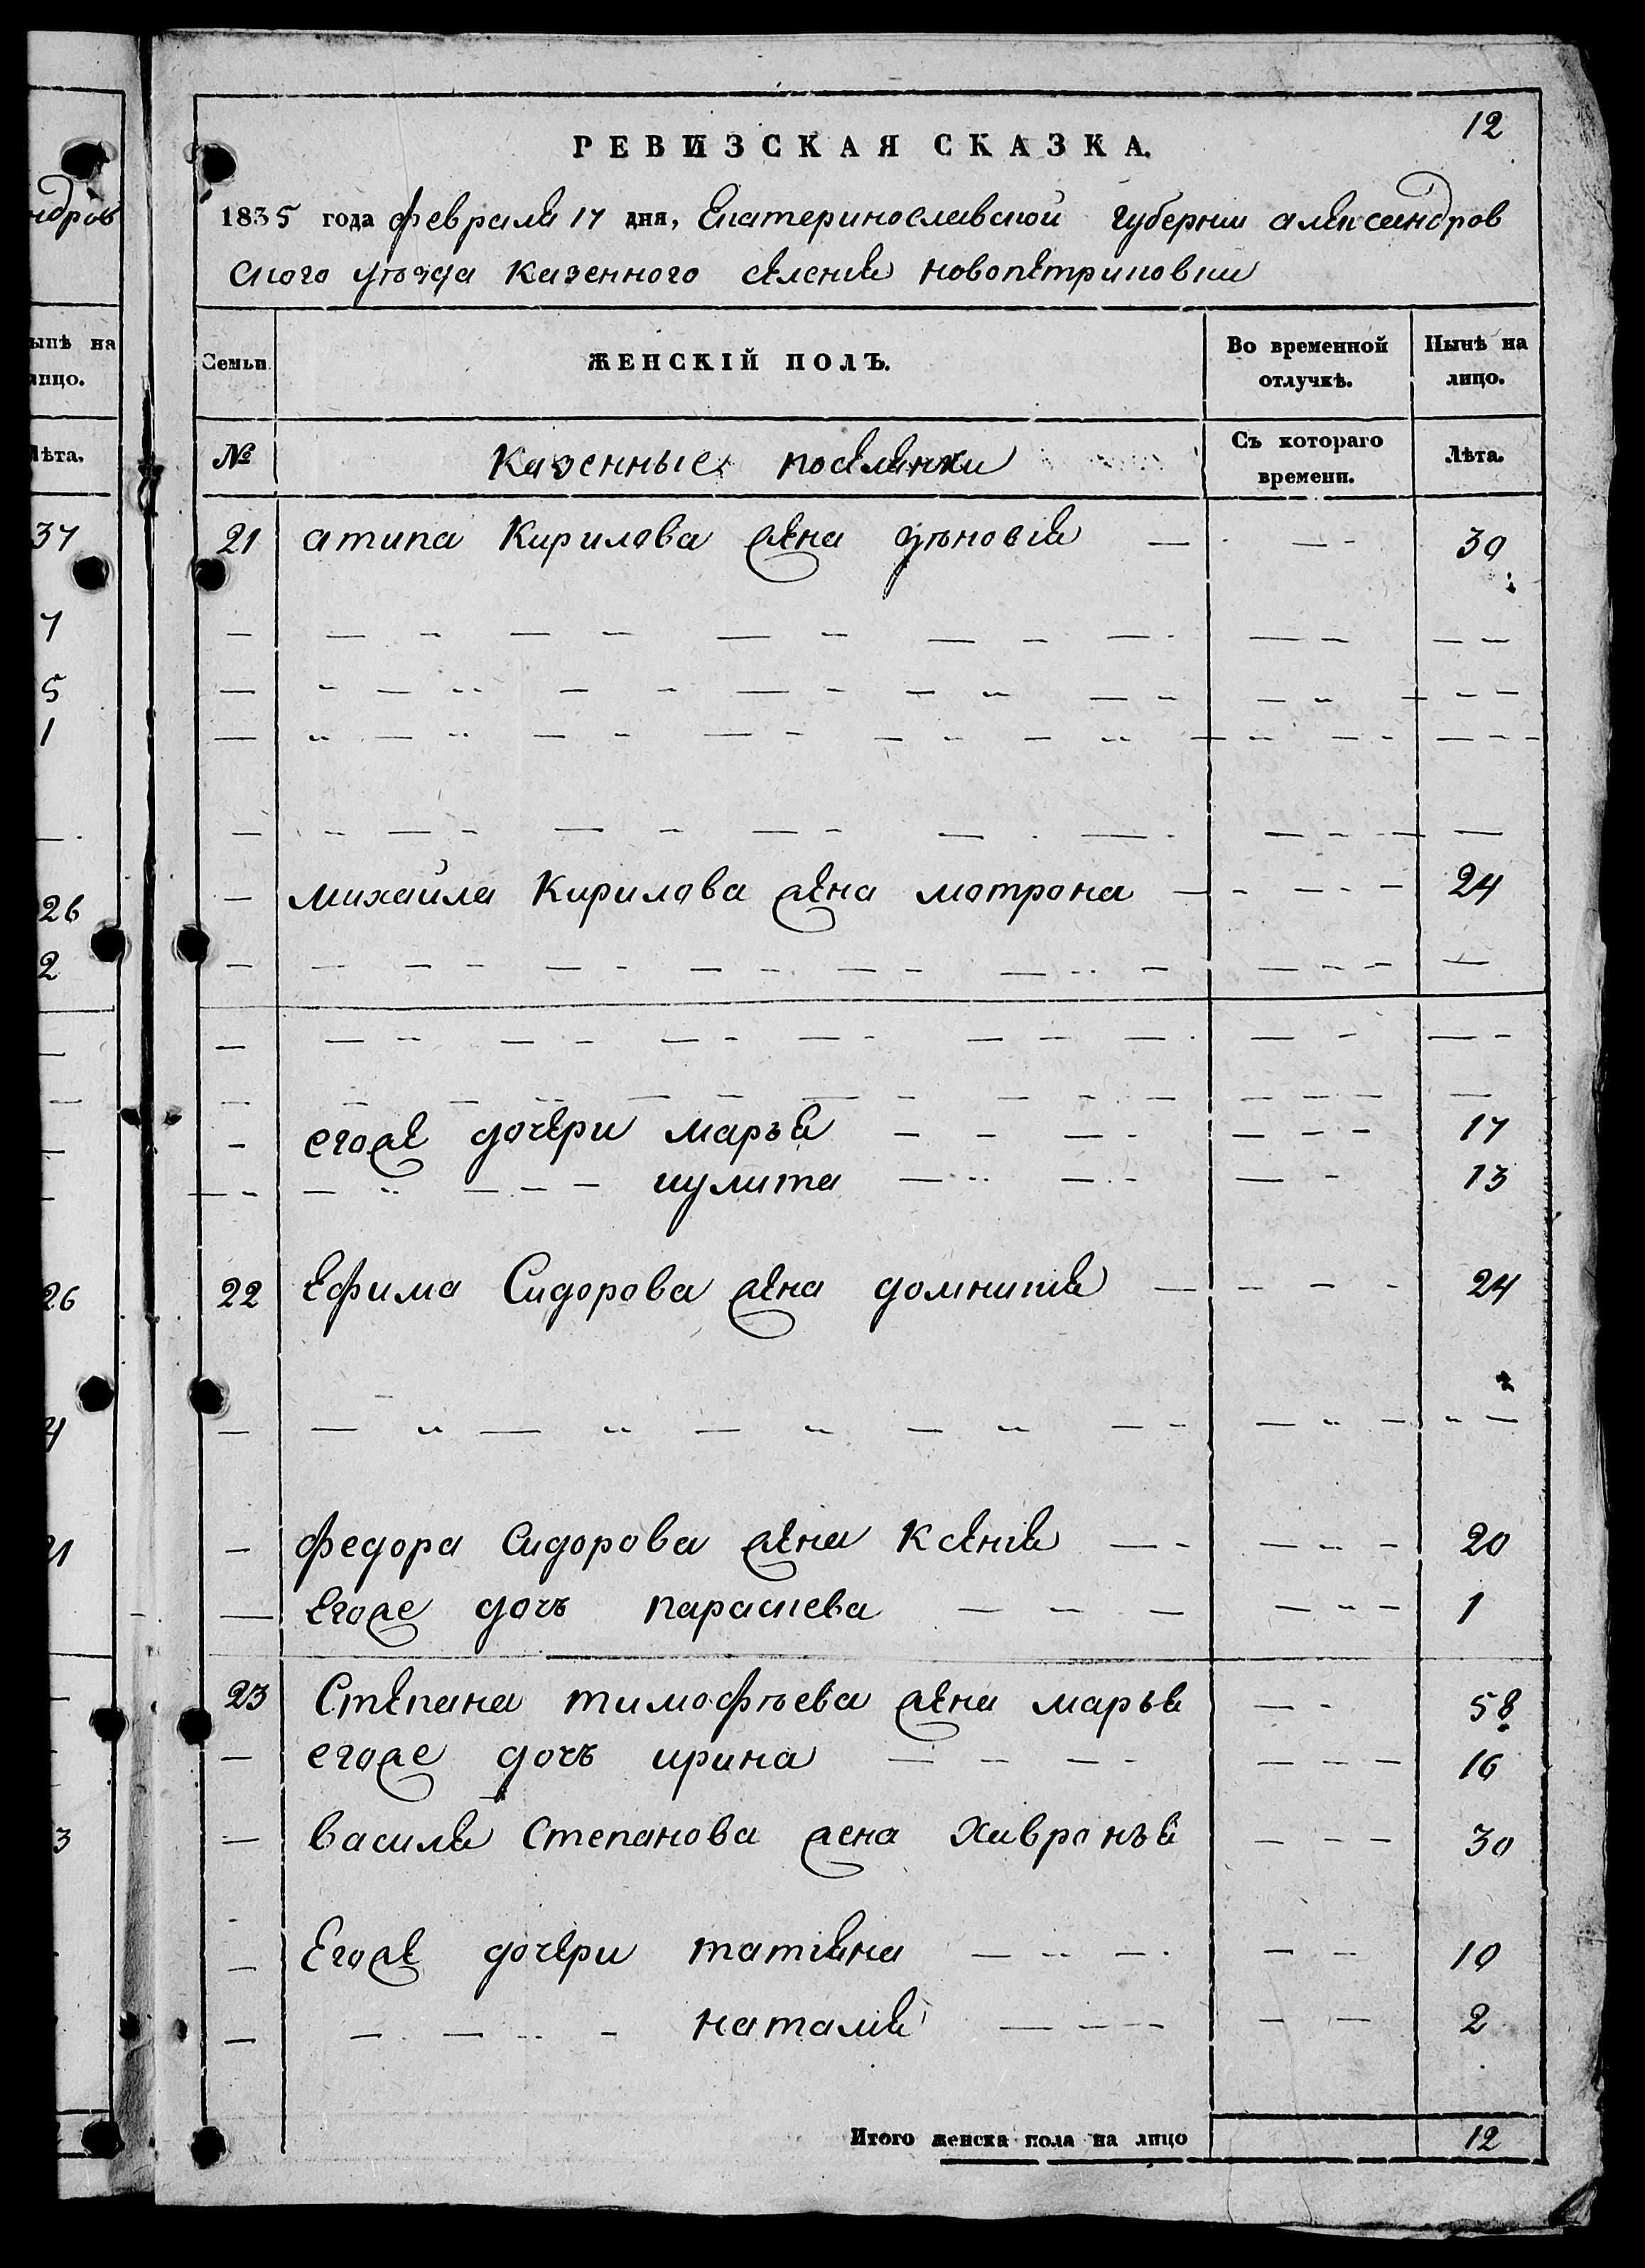 ндров
12
РЕВИЗСКАЯ СКАЗКА.
1835 года февраля 17 дня, Екатеринославской губернии александров
ского уѣзда казенного селения новопетриковки
ынѣ на
лицо.
Семьи
ЖЕНСКІЙ ПОЛЪ.
Во временной
отлучкѣ.
Нынѣ на
лицо.
Лѣта.
№
Казенные поселянки
Съ котораго
времени.
Лѣта.
37
21 Кирилова жена зѣновія — 30
7
5
1
26
— михайла Кирилова жена мотрона — 24
2
— егоже дочери марья — 17
— иулита — 13
26
22 Ефима Сидорова жена домникия — 24
— федора Сидорова жена Ксения — 20
— Егоже дочь параскева — 1
23 Степана тимофѣева жена марья — 58
— егоже дочь ирина — 16
3
— василя Степанова жена Хивронья — 30
— Егоже дочери татияна — 10
— наталия — 2
Итого женска пола на лицо 12